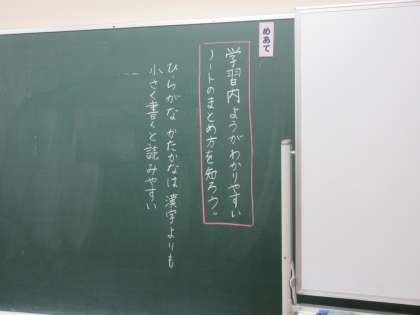 めあて
学習内ようがわかりやすい
ノートのまとめ方を知ろう。
ひらがな かたかなは 漢字よりも
小さく書くと読みやすい